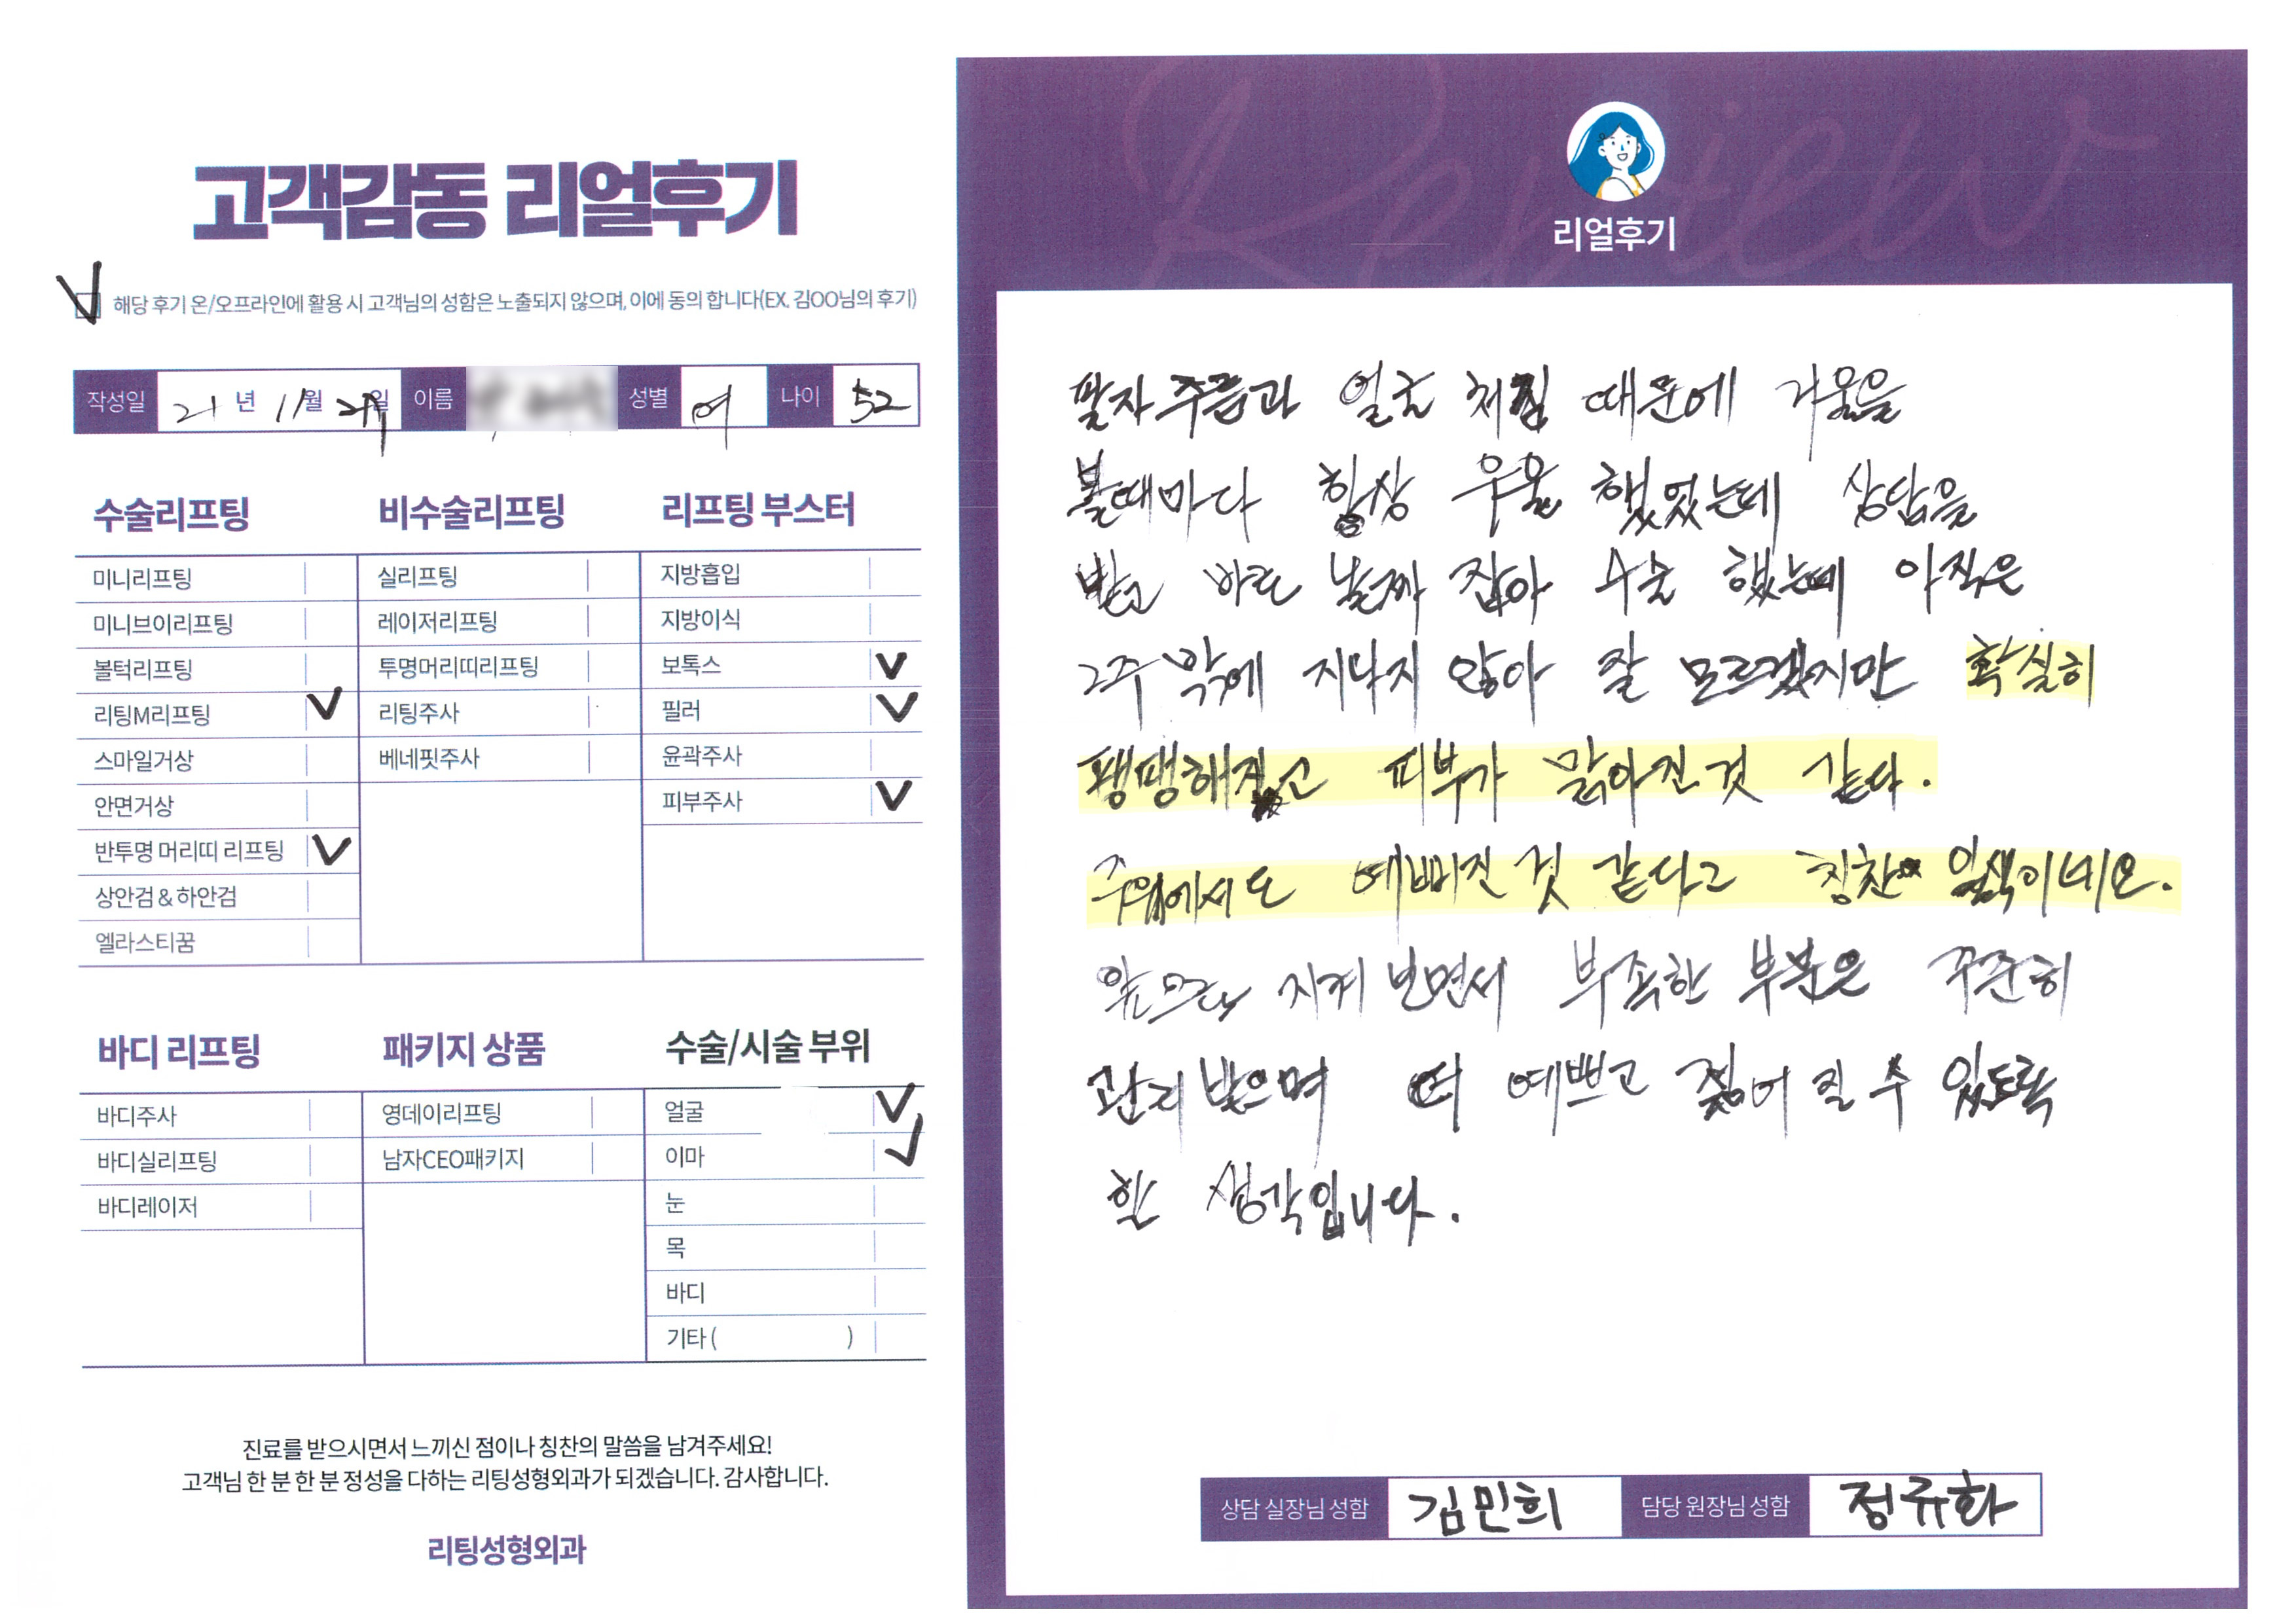 고객감동 리얼후기
해당 후기 온/오프라인에 활용 시 고객님의 성함은 노출되지 않으며, 이에 동의 합니다(EX. 김OO님의 후기)
작성일 21년 11월 일 이름 성별 여 나이 52
수술리프팅
미니리프팅
미니브이리프팅
볼턱리프팅
리팅M리프팅 V
스마일거상
안면거상
반투명 머리띠 리프팅 V
상안검&하안검
엘라스티꿈
비수술리프팅
실리프팅
레이저리프팅
투명머리띠리프팅
리팅주사
베네핏주사
리프팅 부스터
지방흡입
지방이식
보톡스 V
필러 V
윤곽주사
피부주사 V
바디 리프팅
바디주사
바디실리프팅
바디레이저
패키지 상품
영데이리프팅
남자CEO패키지
수술/시술 부위
얼굴 V
이마 V
눈
목
바디
기타( )
진료를 받으시면서 느끼신 점이나 칭찬의 말씀을 남겨주세요!
고객님 한 분 한 분 정성을 다하는 리팅성형외과가 되겠습니다. 감사합니다.
리팅성형외과
Review
리얼후기
팔자주름과 얼굴 처짐 때문에 거울을
볼때마다 항상 우울 했었는데 상담을
받고 바로 날짜 잡아 수술 했는데 아직은
2주 밖에 지나지 않아 잘 모르겠지만 확실히
팽팽해지고 피부가 맑아진것 같다.
주위에서도 예뻐진 것 같다고 칭찬 일색이네요.
앞으로 지켜 보면서 부족한 부분은 꾸준히
관리 받으며 더 예쁘고 젊어 질 수 있도록
할 생각입니다.
상담 실장님 성함 김민희 담당 원장님 성함 정규화